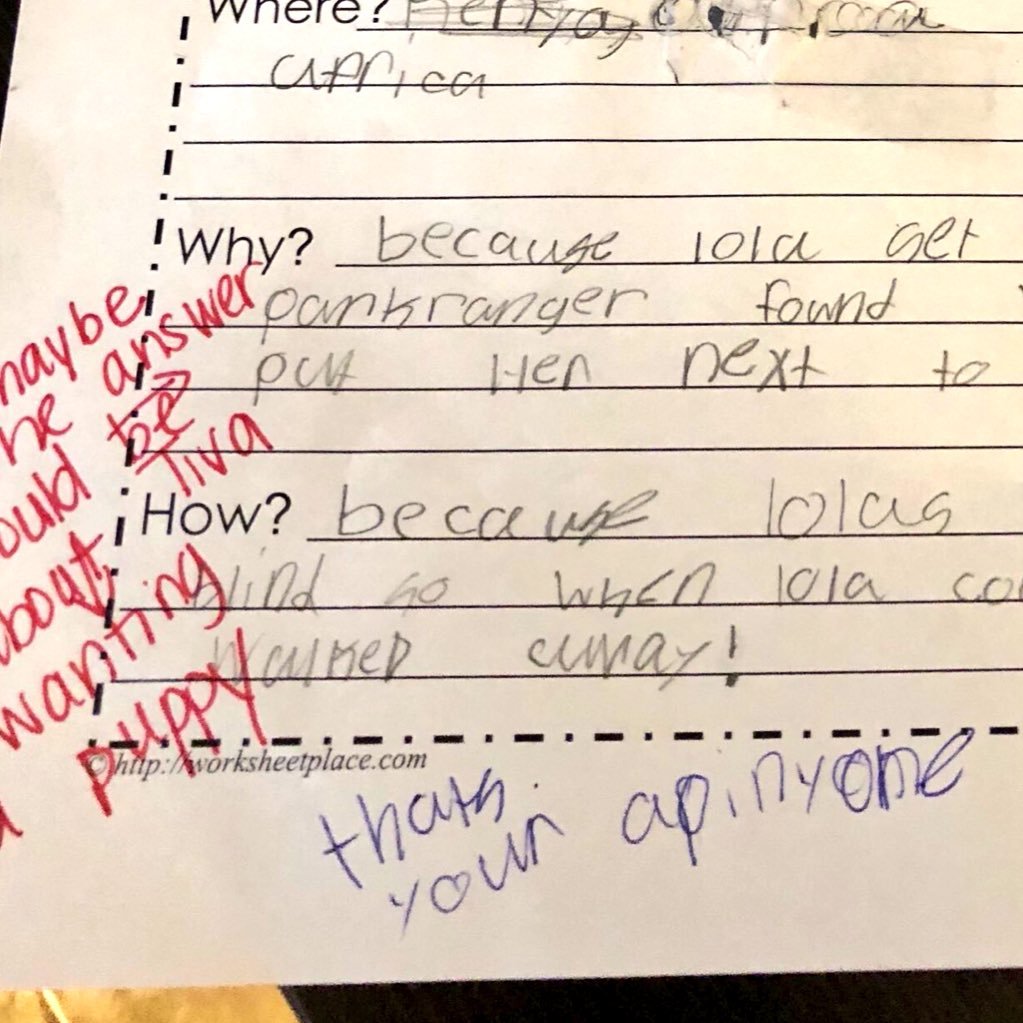 Where?
africa
Why? because lola get
parkranger found
put Her next to
How? because lolas
blind so when lola
walked away!
© http://worksheetplace.com
maybe
answer
be
Tiva
about
wanting
puppy
thats
your apinyone